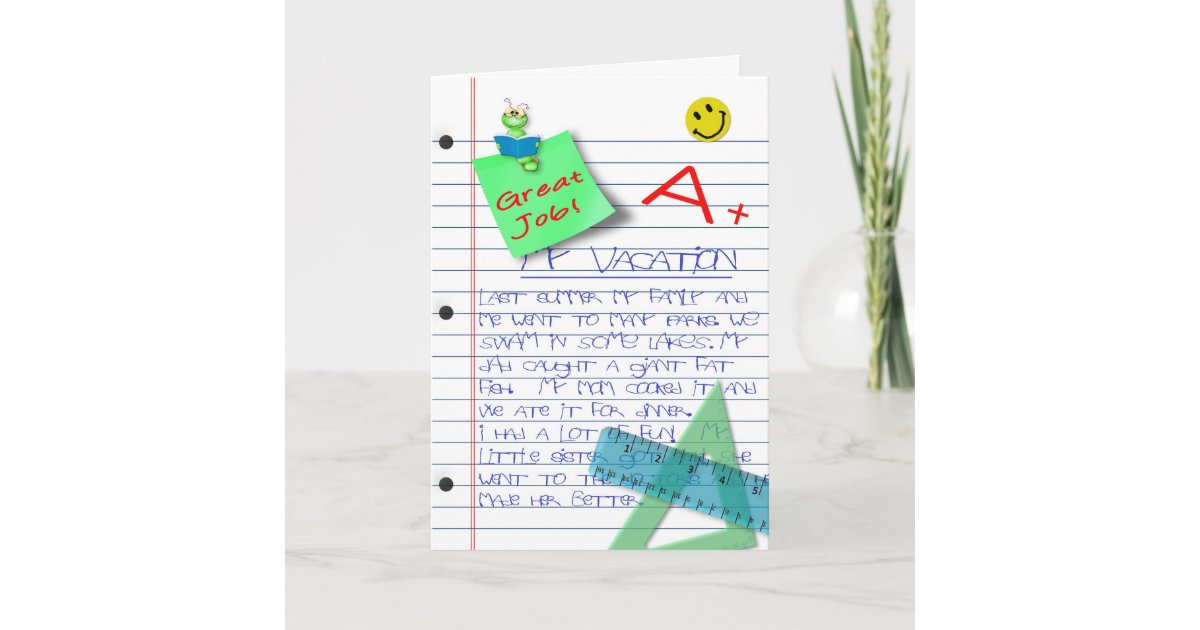 Great
Job!
A+
MY VACATION
LAST SUMMER MY FAMILY AND
ME WENT TO MANY PARKS. WE
SWAM IN SOME LAKES. MY
DAD CAUGHT A GIANT FAT
FISH. MY MOM COOKED IT AND
WE ATE IT FOR DINNER.
I HAD A LOT OF FUN. MY
LITTLE SISTER GOT SHE
WENT TO THE
MADE HER BETTER.
1 2 3 4 5